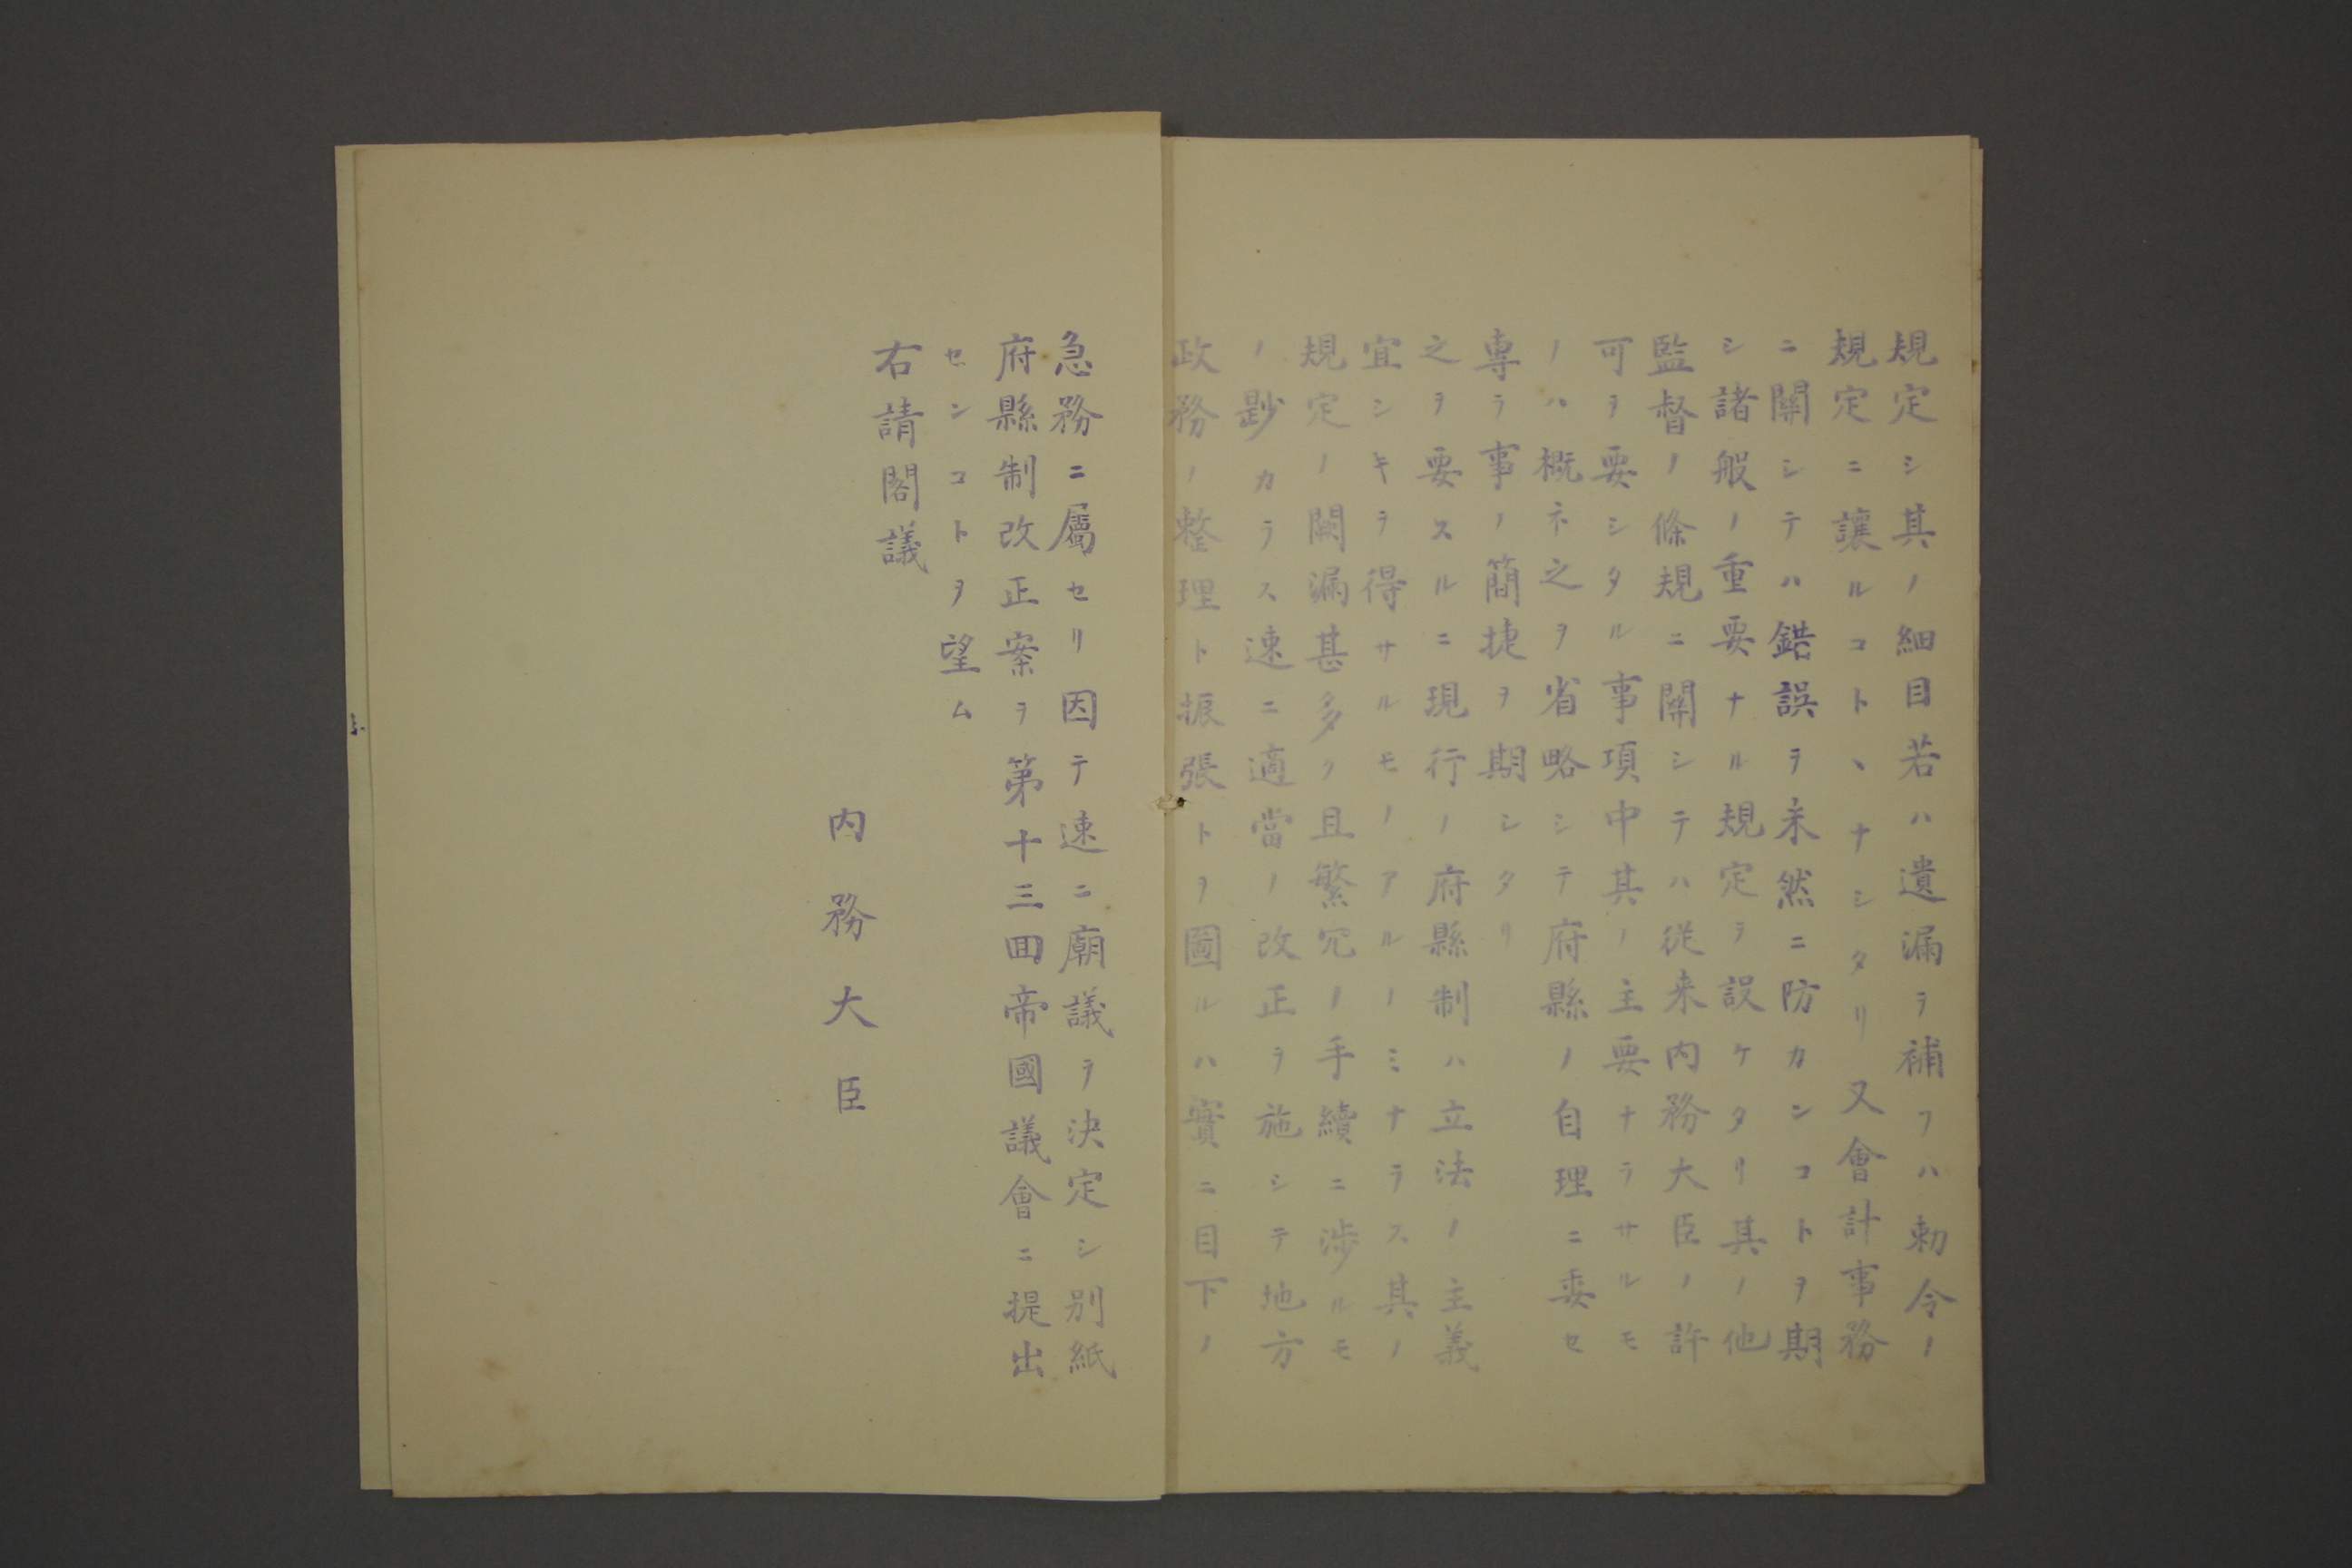 規定シ其ノ細目若ハ遺漏ヲ補フハ勅令ノ
規定ニ讓ルコトヽナシタリ又會計事務
ニ關シテハ錯誤ヲ未然ニ防カンコトヲ期
シ諸般ノ重要ナル規定ヲ設ケタリ其ノ他
監督ノ條規ニ關シテハ從来内務大臣ノ許
可ヲ要シタル事項中其ノ主要ナラサルモ
ノハ概ネ之ヲ省略シテ府縣ノ自理ニ委セ
専ラ事ノ簡捷ヲ期シタリ
之ヲ要スルニ現行ノ府縣制ハ立法ノ主義
宜シキヲ得サルモノアルノミナラス其ノ
規定ノ闕漏甚多ク且繁冗ノ手續ニ渉ルモ
ノ尠カラス速ニ適當ノ改正ヲ施シテ地方
政務ノ整理ト振張トヲ圖ルハ實ニ目下ノ
急務ニ屬セリ因テ速ニ廟議ヲ決定シ別紙
府縣制改正案ヲ第十三回帝國議會ニ提出
センコトヲ望ム
右請閣議
内務大臣